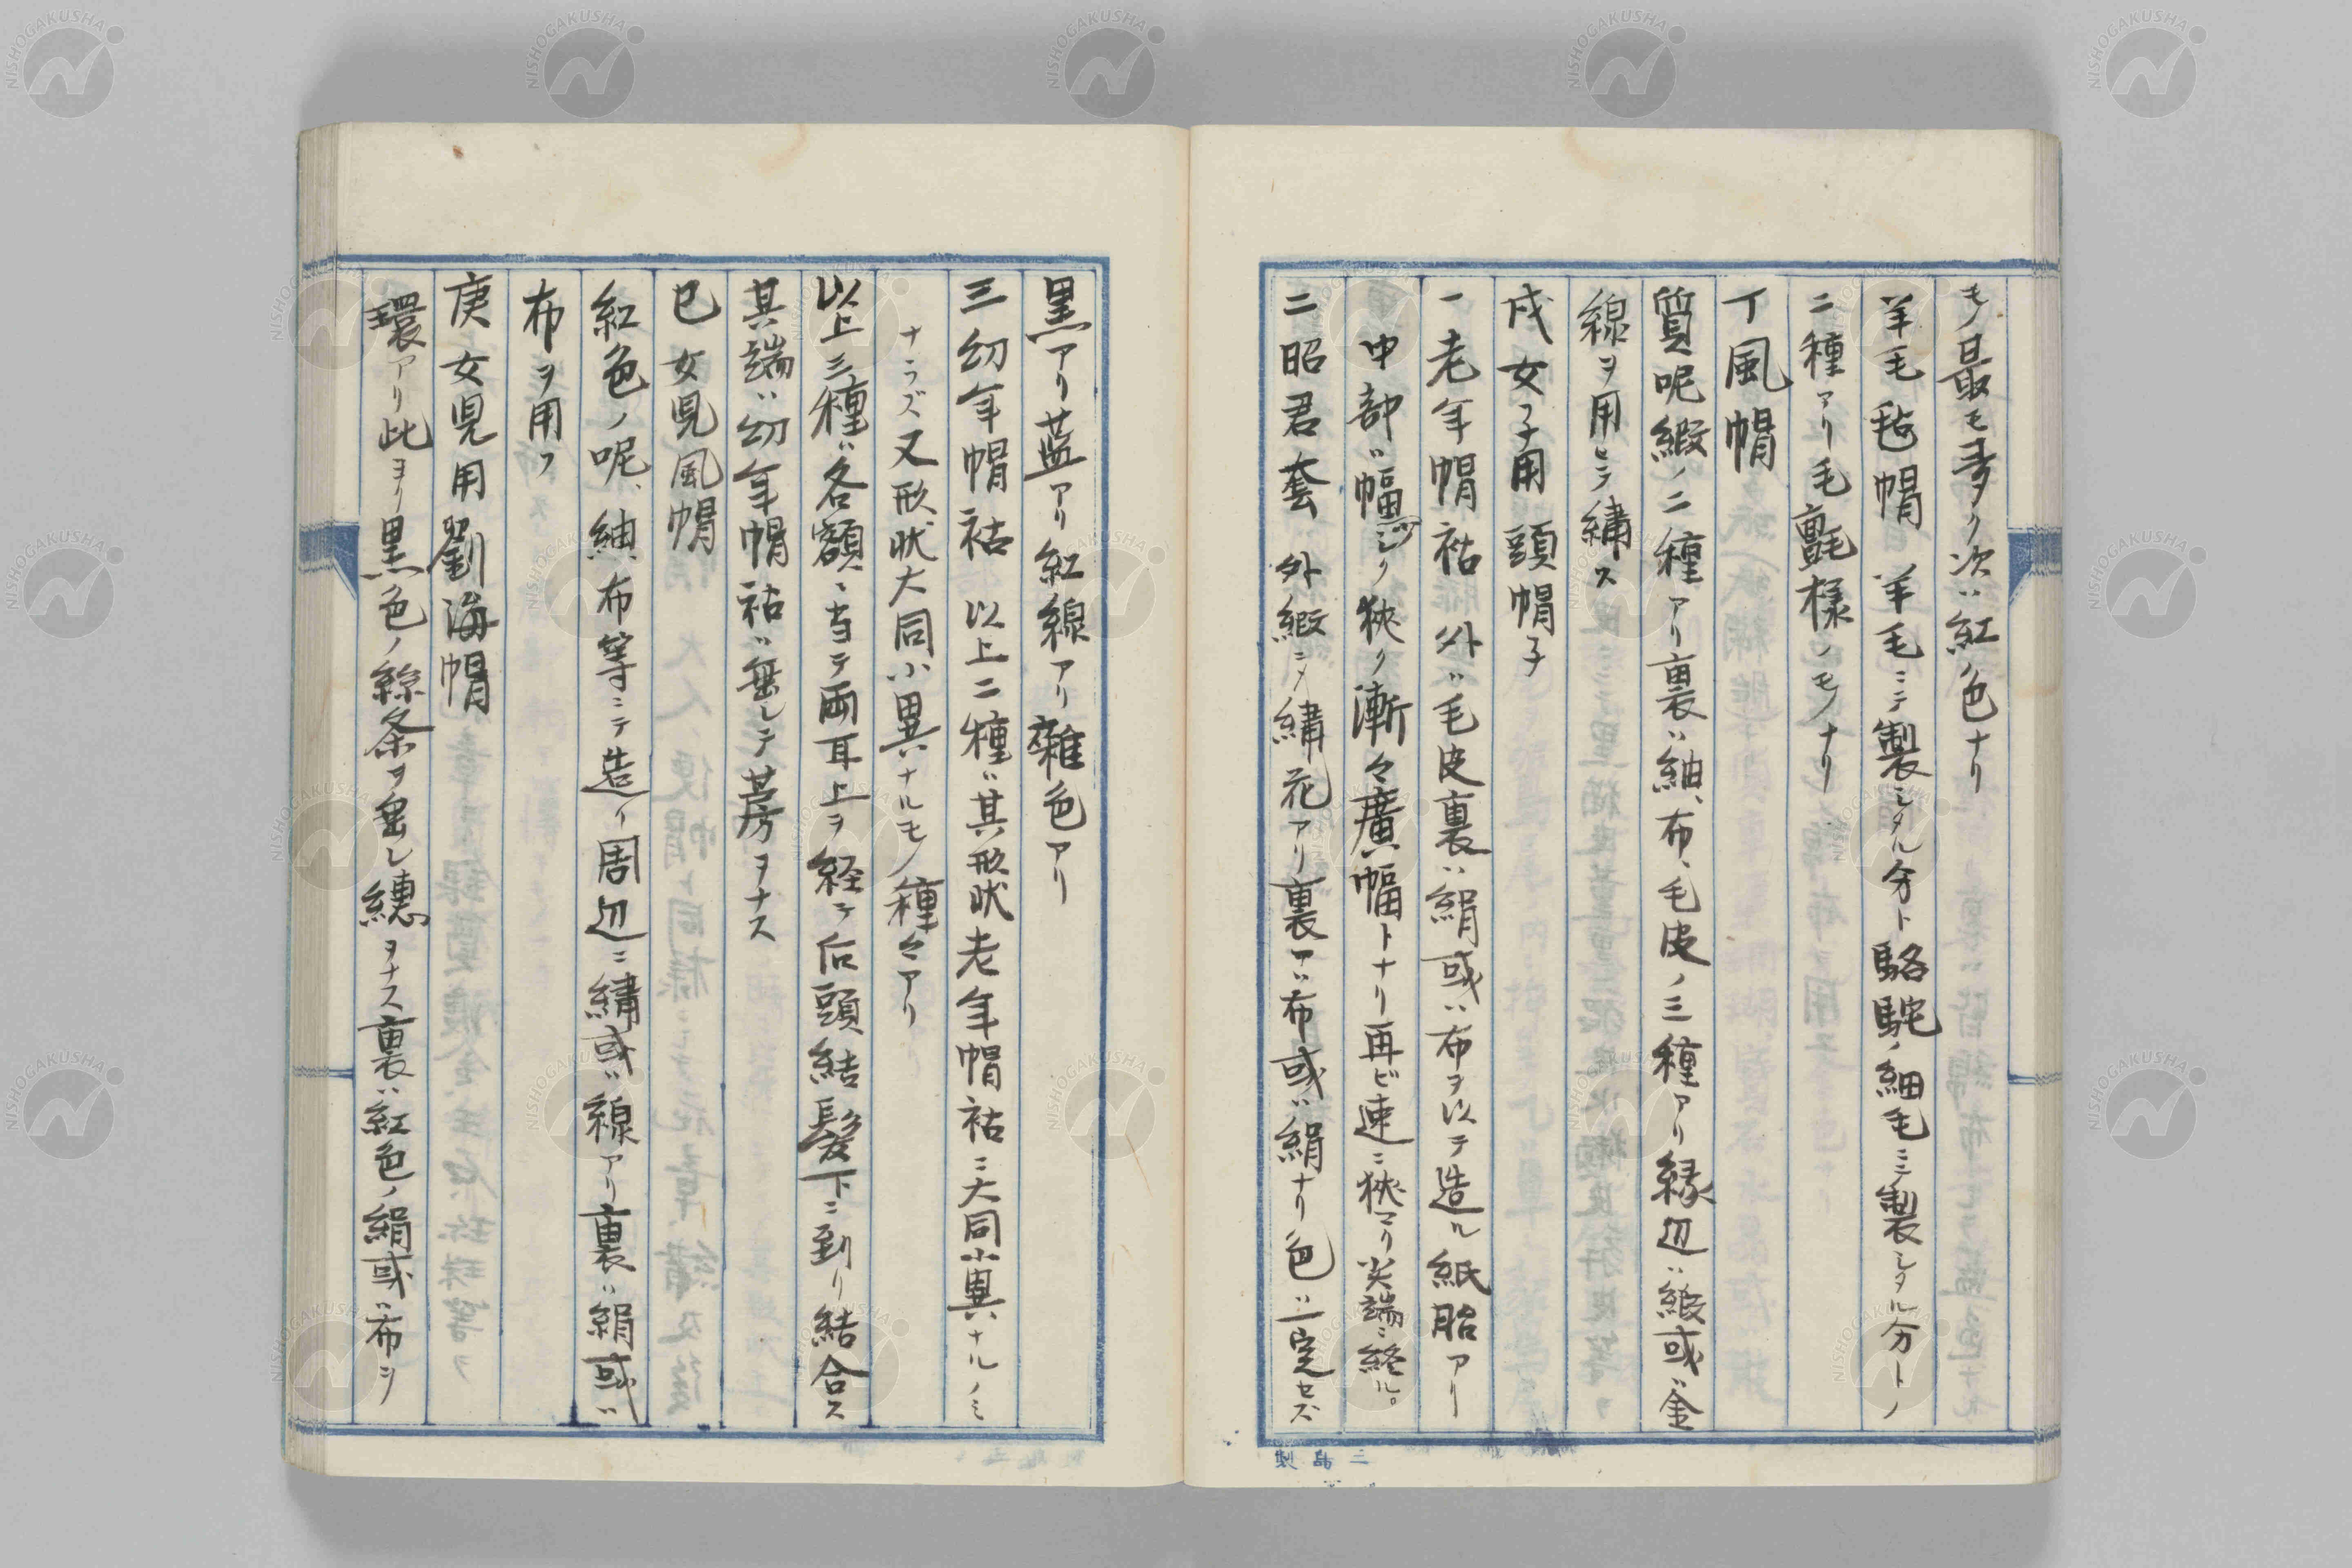 モノ最モ多ク次ハ紅ノ色ナリ
羊毛毡帽 羊毛ニテ製シタル分ト駱駝ノ細毛ニテ製シタル分トノ
二種アリ毛氈様ノモノナリ
丁風帽
質呢緞ノ二種アリ裏ハ紬、布、毛皮ノ三種アリ縁辺ハ緞或ハ金
線ヲ用ヒテ繍ス
戊女子用頭帽子
一老年帽祜外ハ毛皮裏ハ絹或ハ布ヲ以テ造ル紙胎アリ
中部ハ幅 狭ク漸々廣幅トナリ再ビ速ニ狭マリ尖端ニ終ル。
二昭君套 外緞ニタ繍花アリ裏ハ布或ハ絹ナリ色ハ一定セズ
製品二
黒アリ藍アリ紅線アリ雜色アリ
三幼年帽祜 以上二種ハ其形状老年帽祜ニ大同小異ナルノミ
ナラズ又形状大同小異ナルモノ種々アリ
以上三種ハ各額ニ当テ両耳上ヲ経テ后頭結髪下ニ到リ結合ス
其端ハ幼年帽祜ハ垂レテ 房ヲナス
已女児風帽
紅色ノ呢、紬、布等ニテ造リ周辺ニ繍或ハ線アリ裏ハ絹或ハ
布ヲ用フ
庚女児用劉海帽
環アリ此ヨリ黒色ノ絲条ヲ垂レ繐ヲナス裏ハ紅色ノ絹或ハ布ヲ
NISHOGAKUSHA